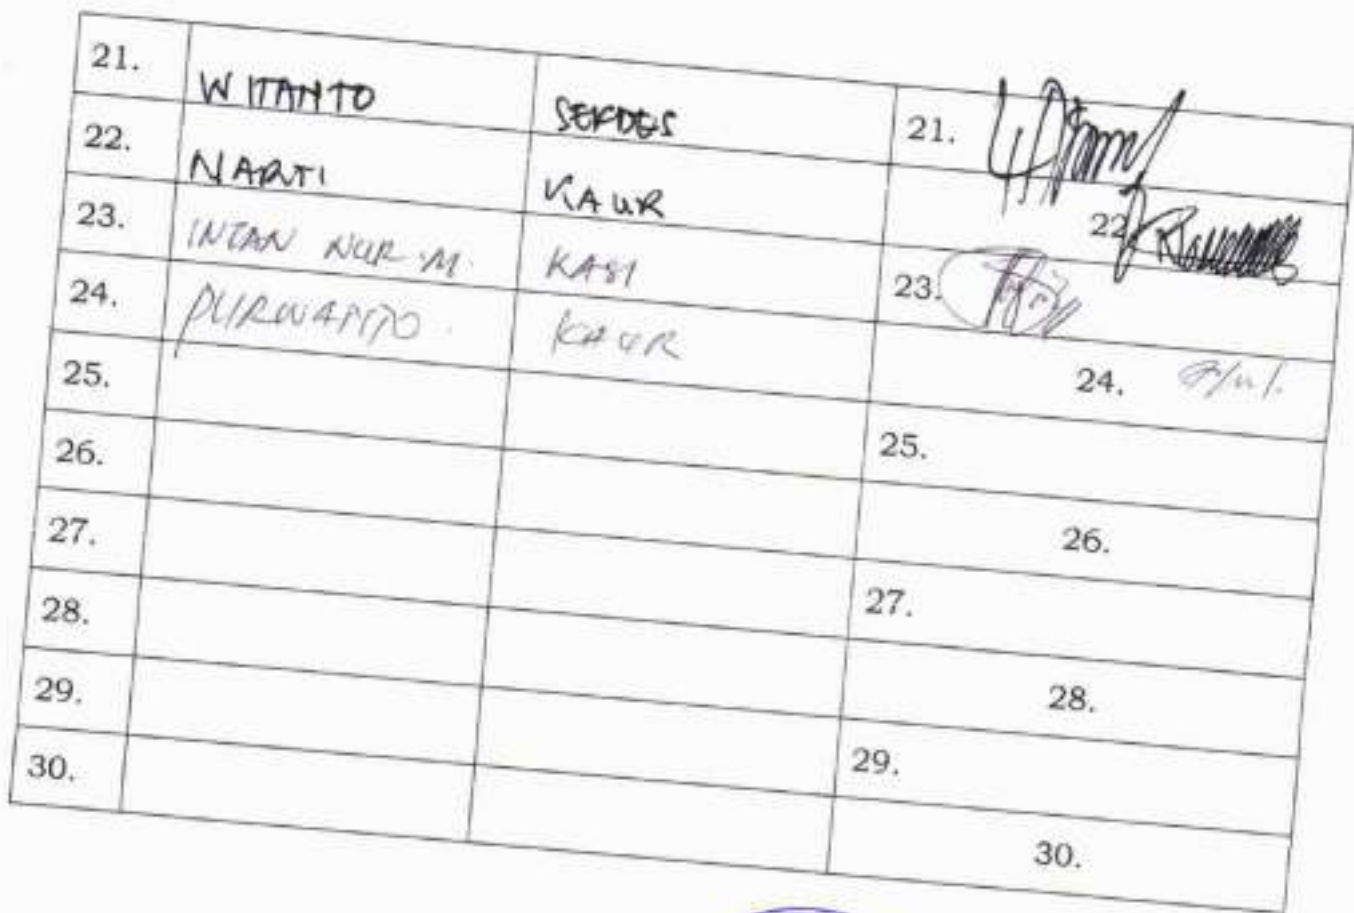 21. WITANTO SEKDES 21.
22. NARTI KAUR 22
23. INTAN NUR .M. KASI 23.
24. PURWANTO. KAUR 24.
25. 25.
26. 26.
27. 27.
28. 28.
29. 29.
30. 30.